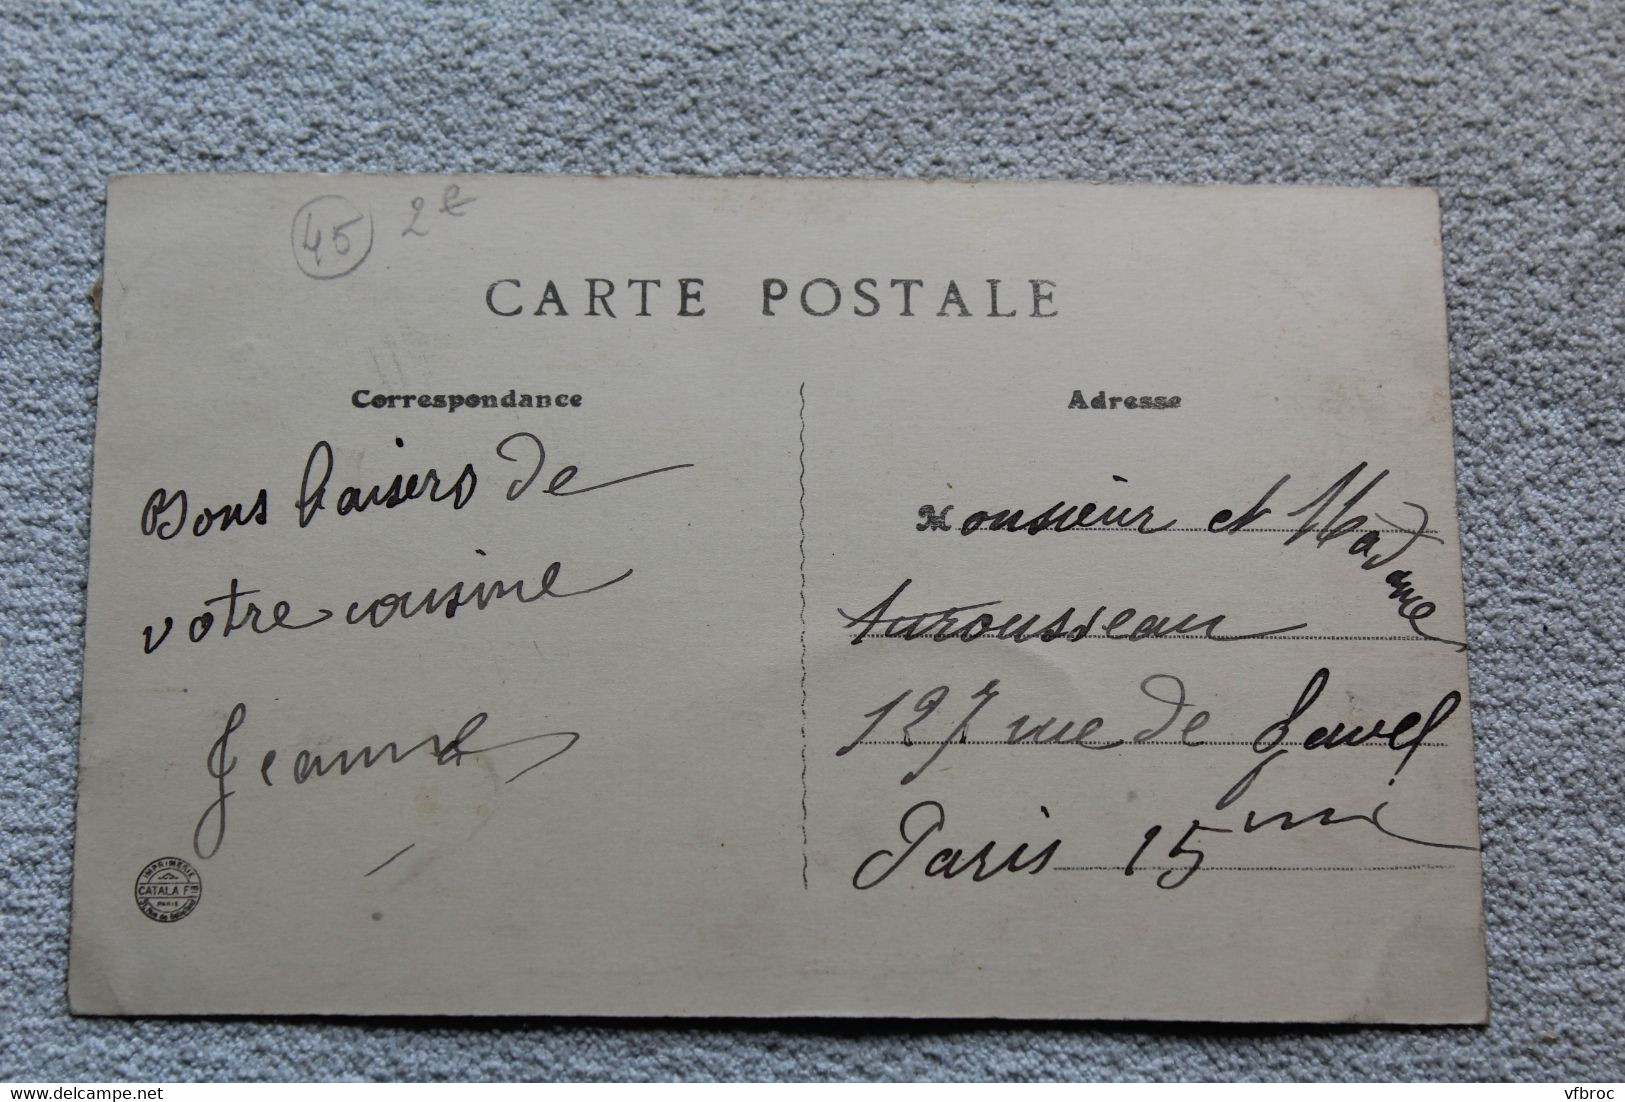 45 2€
CARTE POSTALE
Correspondance
Bons baisers de
votre cousine
Jeanne
IMPRIMERIE
CATALA Fres
PARIS
Adresse
Monsieur et Madame
Aurousseau
127 rue de Javel
Paris 15me
www.delcampe.net
vfbroc